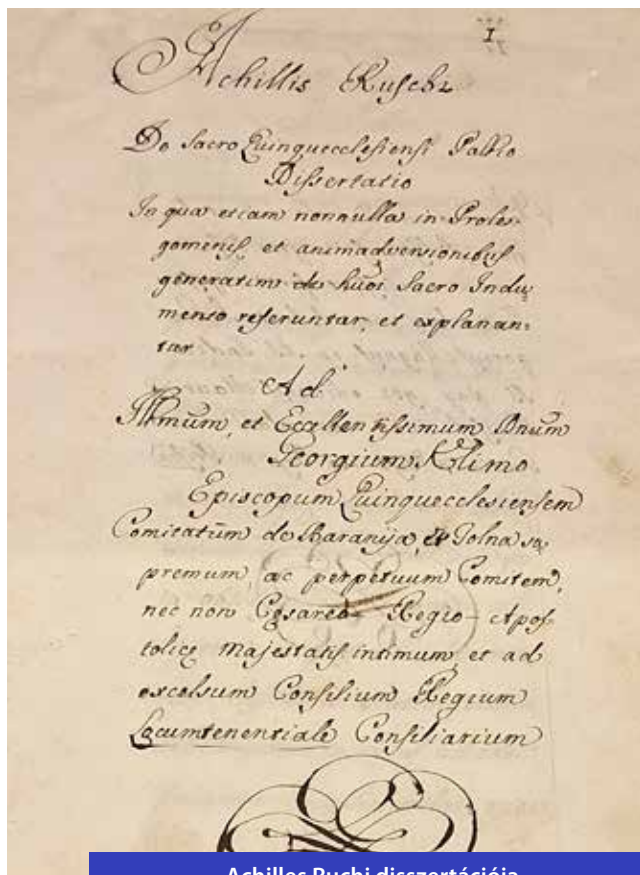 1
Achillis Ruschi
De Sacro Quinqueecclesiensi Pallio
Dissertatio
In qua etiam nonnulla in Prole-
gomenis, et animadversionibus
generatim de hūoi Sacro Indu-
mento referuntur, et explanan-
tur
Ad
Illmum, et Excellentissimum Dnum
Georgium Klimo
Episcopum Quinqueecclesiensem
Comitatūm de Baranya, et Tolna su-
premum ac perpetuum Comitem,
nec non Cesareo-Regio-Apos-
tolicę Majestatis intimum, et ad
excelsum Consilium Regium
Locumtenentiale Consiliarium
Achilles Ruchi disszertációja